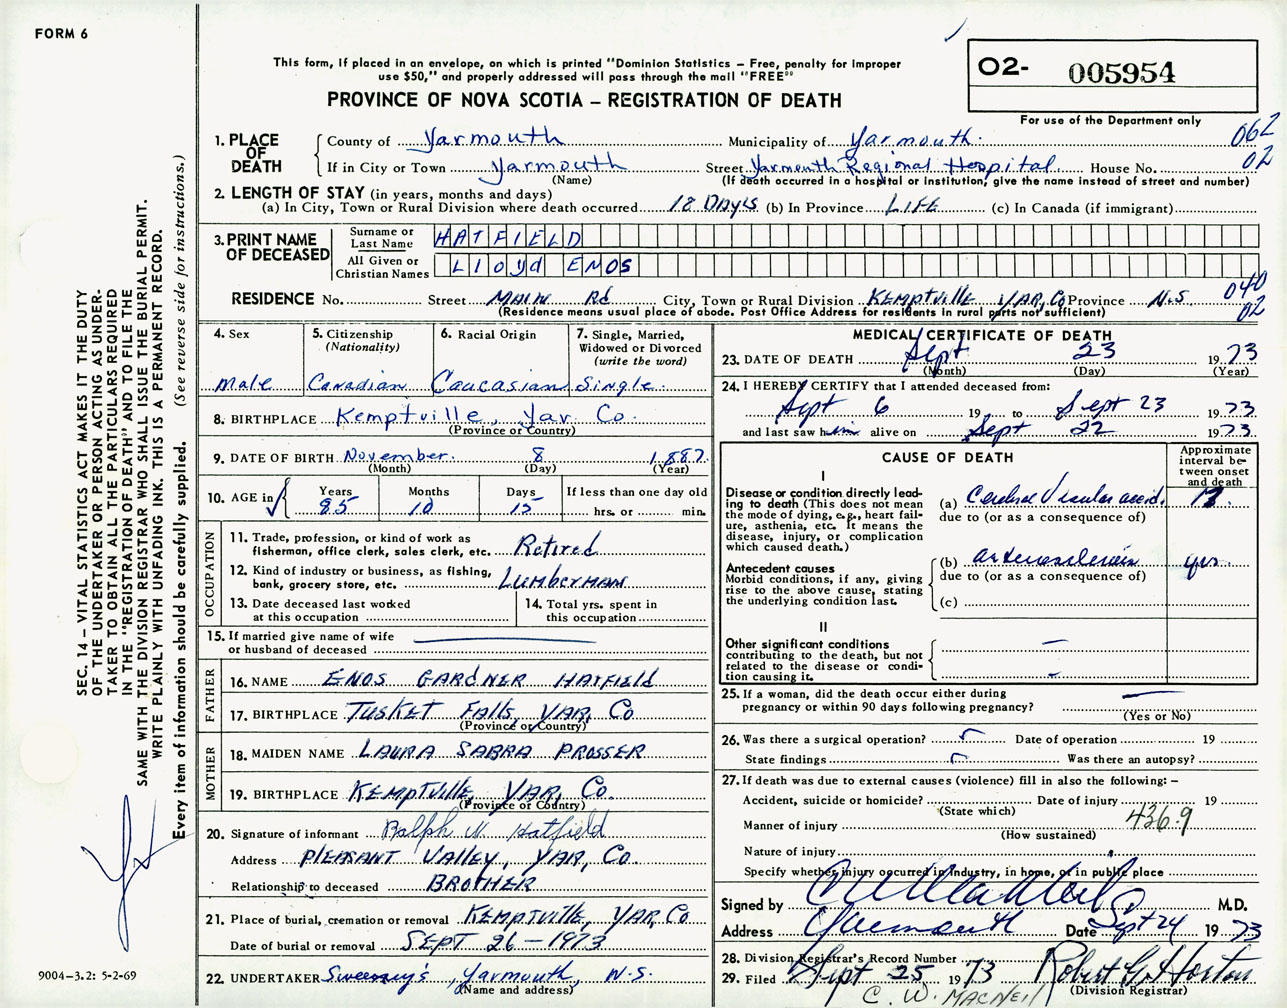 FORM 6
This form, if placed in an envelope, on which is printed "Dominion Statistics – Free, penalty for improper
use $50," and properly addressed will pass through the mail "FREE"
PROVINCE OF NOVA SCOTIA – REGISTRATION OF DEATH
O2- 005954
For use of the Department only
062
02
1. PLACE OF DEATH
County of Yarmouth Municipality of Yarmouth
If in City or Town Yarmouth Street Yarmouth Regional Hospital House No.
(Name) (If death occurred in a hospital or institution, give the name instead of street and number)
2. LENGTH OF STAY (in years, months and days)
(a) In City, Town or Rural Division where death occurred 18 Days (b) In Province LIFE (c) In Canada (if immigrant)
3. PRINT NAME OF DECEASED
Surname or Last Name HATFIELD
All Given or Christian Names Lloyd ENOS
RESIDENCE No. Street MAIN Rd City, Town or Rural Division Kemptville YAR, Co Province N.S
(Residence means usual place of abode. Post Office Address for residents in rural parts not sufficient)
040
02
4. Sex
male
5. Citizenship
(Nationality)
Canadian
6. Racial Origin
Caucasian
7. Single, Married,
Widowed or Divorced
(write the word)
Single
8. BIRTHPLACE Kemptville, Yar. Co.
(Province or Country)
9. DATE OF BIRTH November 8 1887
(Month) (Day) (Year)
10. AGE in
Years 85 Months 10 Days 15
If less than one day old
hrs. or min.
OCCUPATION
11. Trade, profession, or kind of work as
fisherman, office clerk, sales clerk, etc. Retired
12. Kind of industry or business, as fishing,
bank, grocery store, etc. Lumberman
13. Date deceased last worked
at this occupation
14. Total yrs. spent in
this occupation
15. If married give name of wife
or husband of deceased
FATHER
16. NAME ENOS GARDNER HATFIELD
17. BIRTHPLACE TUSKET FALLS, YAR, Co
(Province or Country)
MOTHER
18. MAIDEN NAME LAURA SABRA PROSSER
19. BIRTHPLACE KEMPTVILLE, YAR, Co.
(Province or Country)
20. Signature of informant Ralph N. Hatfield
Address PLEASANT VALLEY, YAR, Co.
Relationship to deceased BROTHER
21. Place of burial, cremation or removal KEMPTVILLE, YAR, Co
Date of burial or removal SEPT 26 – 1973
22. UNDERTAKER Sweeney's, Yarmouth, N.S.
(Name and address)
MEDICAL CERTIFICATE OF DEATH
23. DATE OF DEATH Sept 23 1973
(Month) (Day) (Year)
24. I HEREBY CERTIFY that I attended deceased from:
Sept 6 19 to Sept 23 1973
and last saw him alive on Sept 22 1973
CAUSE OF DEATH
Approximate
interval be-
tween onset
and death
I
Disease or condition directly lead-
ing to death (This does not mean
the mode of dying, e.g., heart fail-
ure, asthenia, etc. It means the
disease, injury, or complication
which caused death.)
(a) Cerebral Vascular accid.
due to (or as a consequence of)
Antecedent causes
Morbid conditions, if any, giving
rise to the above cause, stating
the underlying condition last.
(b) arteriosclerosis yrs
due to (or as a consequence of)
(c)
II
Other significant conditions
contributing to the death, but not
related to the disease or condi-
tion causing it.
25. If a woman, did the death occur either during
pregnancy or within 90 days following pregnancy?
(Yes or No)
26. Was there a surgical operation? Date of operation 19
State findings Was there an autopsy?
27. If death was due to external causes (violence) fill in also the following: –
Accident, suicide or homicide? Date of injury 19
(State which)
Manner of injury 436.9
(How sustained)
Nature of injury
Specify whether injury occurred in industry, in home, or in public place
Signed by M.D.
Address Yarmouth Date Sept 24 1973
28. Division Registrar's Record Number
29. Filed Sept 25 1973 Robert G. Horton
(Division Registrar)
C. W. MACNEIL
SEC. 14 – VITAL STATISTICS ACT MAKES IT THE DUTY
OF THE UNDERTAKER OR PERSON ACTING AS UNDER-
TAKER TO OBTAIN ALL THE PARTICULARS REQUIRED
IN THE "REGISTRATION OF DEATH" AND TO FILE THE
SAME WITH THE DIVISION REGISTRAR WHO SHALL ISSUE THE BURIAL PERMIT.
WRITE PLAINLY WITH UNFADING INK. THIS IS A PERMANENT RECORD.
Every item of information should be carefully supplied. (See reverse side for instructions.)
9004-3.2: 5-2-69